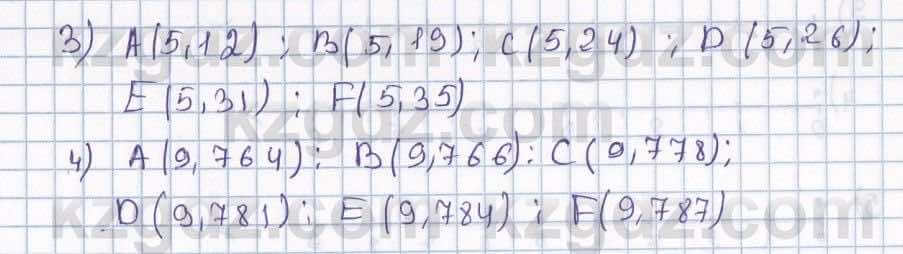 3) A(5,12) ; B(5,19); C(5,24) ; D (5,26);
E (5,31) ; F(5,35)
4) A(9,764); B(9,766); C(9,778);
D(9,781); E(9,784) ; F(9,787)
kzgdz.com